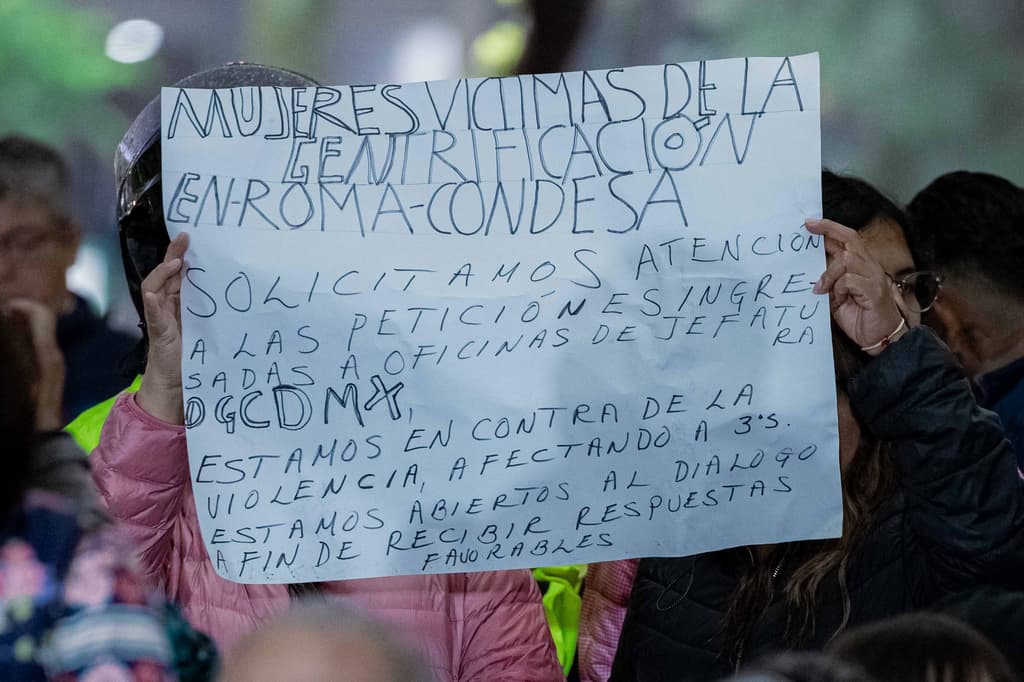 MUJERES VICTIMAS DE LA
GENTRIFICACIÓN
EN-ROMA-CONDESA
SOLICITAMOS ATENCIÓN
A LAS PETICIÓNES INGRE-
SADAS A OFICINAS DE JEFATU
RA
OGCDMX,
ESTAMOS EN CONTRA DE LA
VIOLENCIA, AFECTANDO A 3's.
ESTAMOS ABIERTOS AL DIALOGO
A FIN DE RECIBIR RESPUESTAS
FAVORABLES